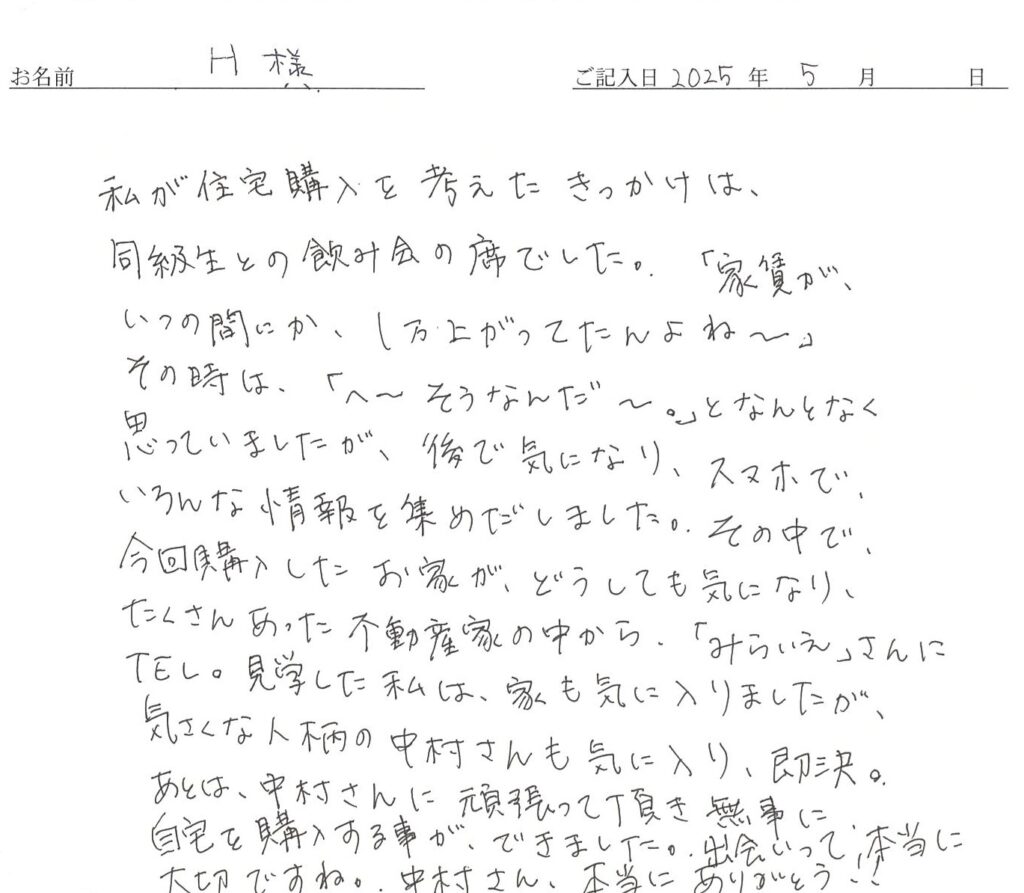 お名前 H 様 ご記入日 2025 年 5 月 日
私が住宅購入を考えたきっかけは、
同級生との飲み会の席でした。「家賃が、
いつの間にか、1万上がってたんよね〜」
その時は、「へ〜そうなんだ〜。」となんとなく
思っていましたが、後で気になり、スマホで、
いろんな情報を集めだしました。その中で、
今回購入したお家が、どうしても気になり、
たくさんあった不動産家の中から、「みらいえ」さんに
TEL。見学した私は、家も気に入りましたが、
気さくな人柄の中村さんも気に入り、即決。
あとは、中村さんに頑張って頂き無事に
自宅を購入する事が、できました。出会いって、本当に
大切ですね。中村さん、本当にありがとう!!